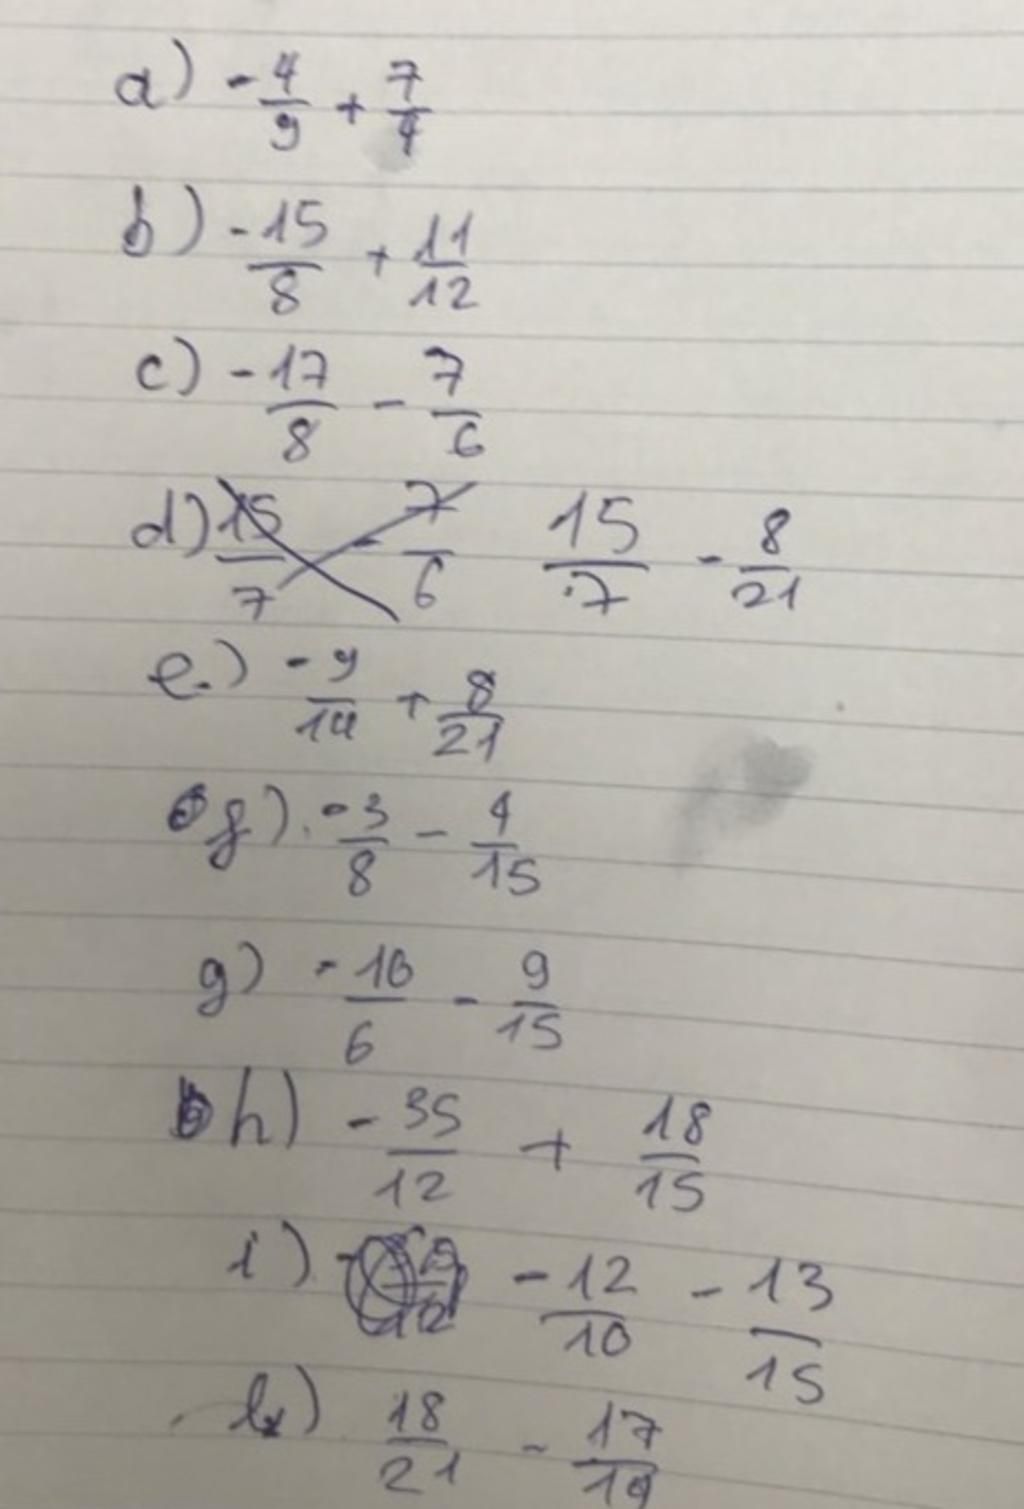 a) -4/9 + 7/4
b) -15/8 + 11/12
c) -17/8 - 7/6
d) 15/7 - 7/6 15/7 - 8/21
e.) -9/14 + 8/21
f) -3/8 - 4/15
g) -16/6 - 9/15
h) -35/12 + 18/15
i) -12/10 - 13/15
18/21 - 17/